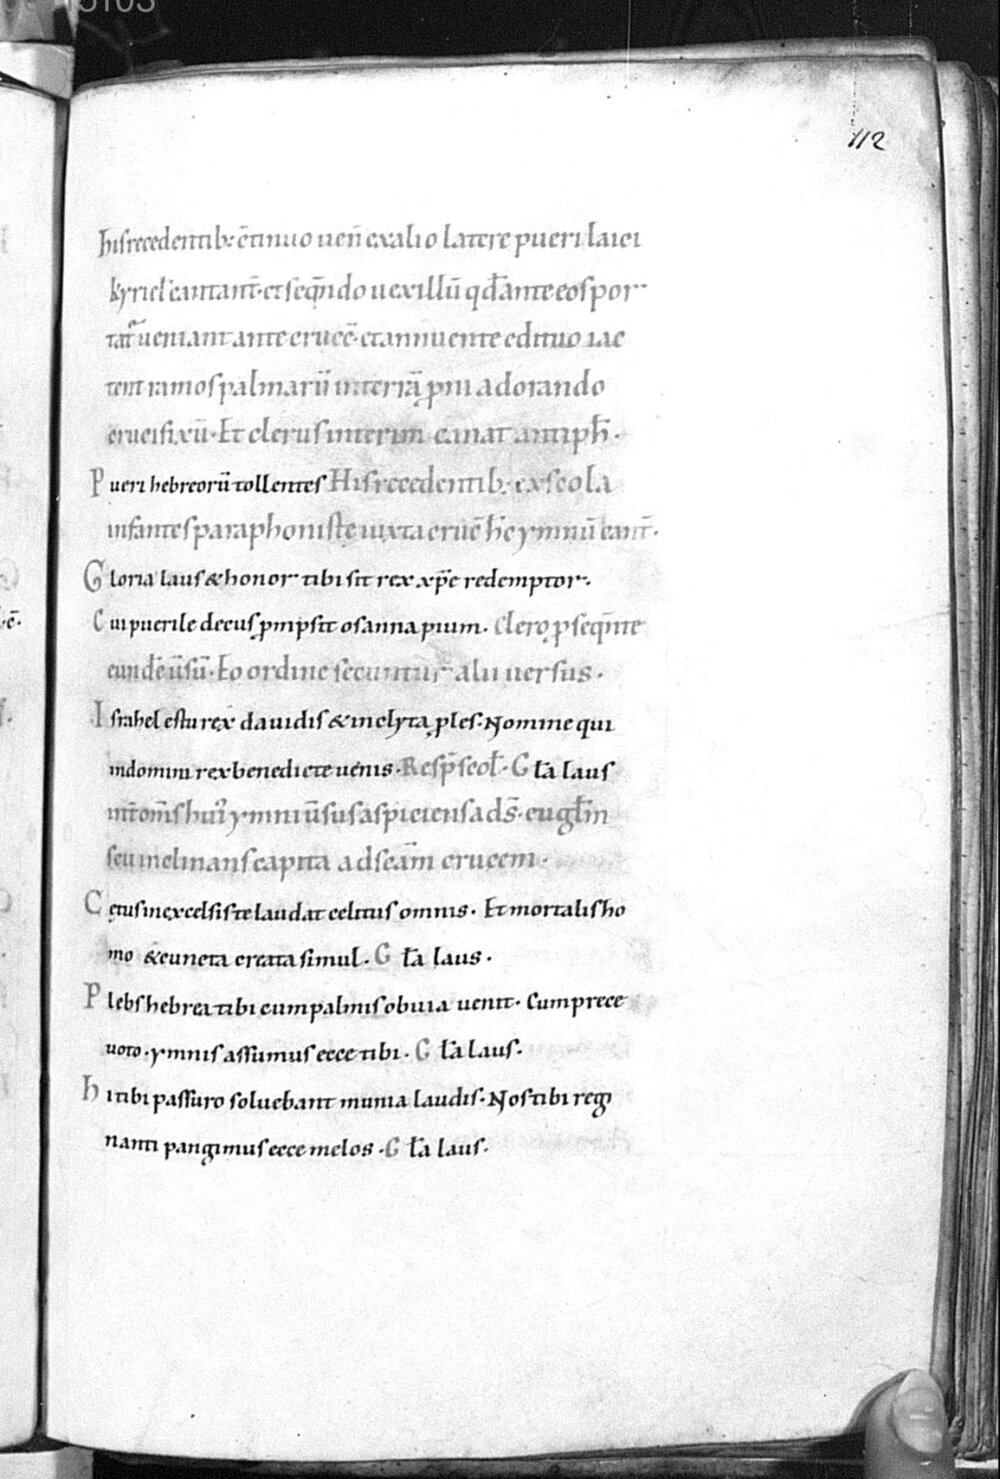 112
hisrecedentib: c̄tinuo ueñ exalio latere pueri laici
kyriel̄ cantant̄· et seq̄ndo uexillū qd̄ ante eos por
tat̃ ueniant ante crucē· et annuente edituo iac
tent ramos palmarū interrā ꝓni adorando
crucifixū· Et clerus interim canat antiph̄·
Pueri hebreorū tollentes His recedentib: ex scola
infantes paraphonistę iuxta crucē h̄c ymnū cant̄·
Gloria laus & honor tibi sit rex xp̄e redemptor·
Cui puerile decus ꝓmpsit osanna pium· Clerꝰ ꝓseq̄nte
eundē ūsū· Eo ordine secuntur alii uersus·
Israhel es tu rex dauidis & inclyta ꝓles· Nomine qui
indomini rex benedicte uenis· Resp̄ scol̄· Gl̄a laus
int̄ om̄s hui᷒ ymni ūsus aspiciens ad s̄· eugl̄m
seu inclinans capita ad scām crucem·
Cętus in excelsis te laudat celitus omnis· Et mortalis ho
mo &cuncta creata simul· Gl̄a laus·
Plebs hebrea tibi cum palmis obuia uenit· Cum prece
uoto· ymnis assumus ecce tibi· Gl̄a laus·
Hi tibi passuro soluebant munia laudis· Nos tibi reg
nanti pangimus ecce melos· Gl̄a laus·